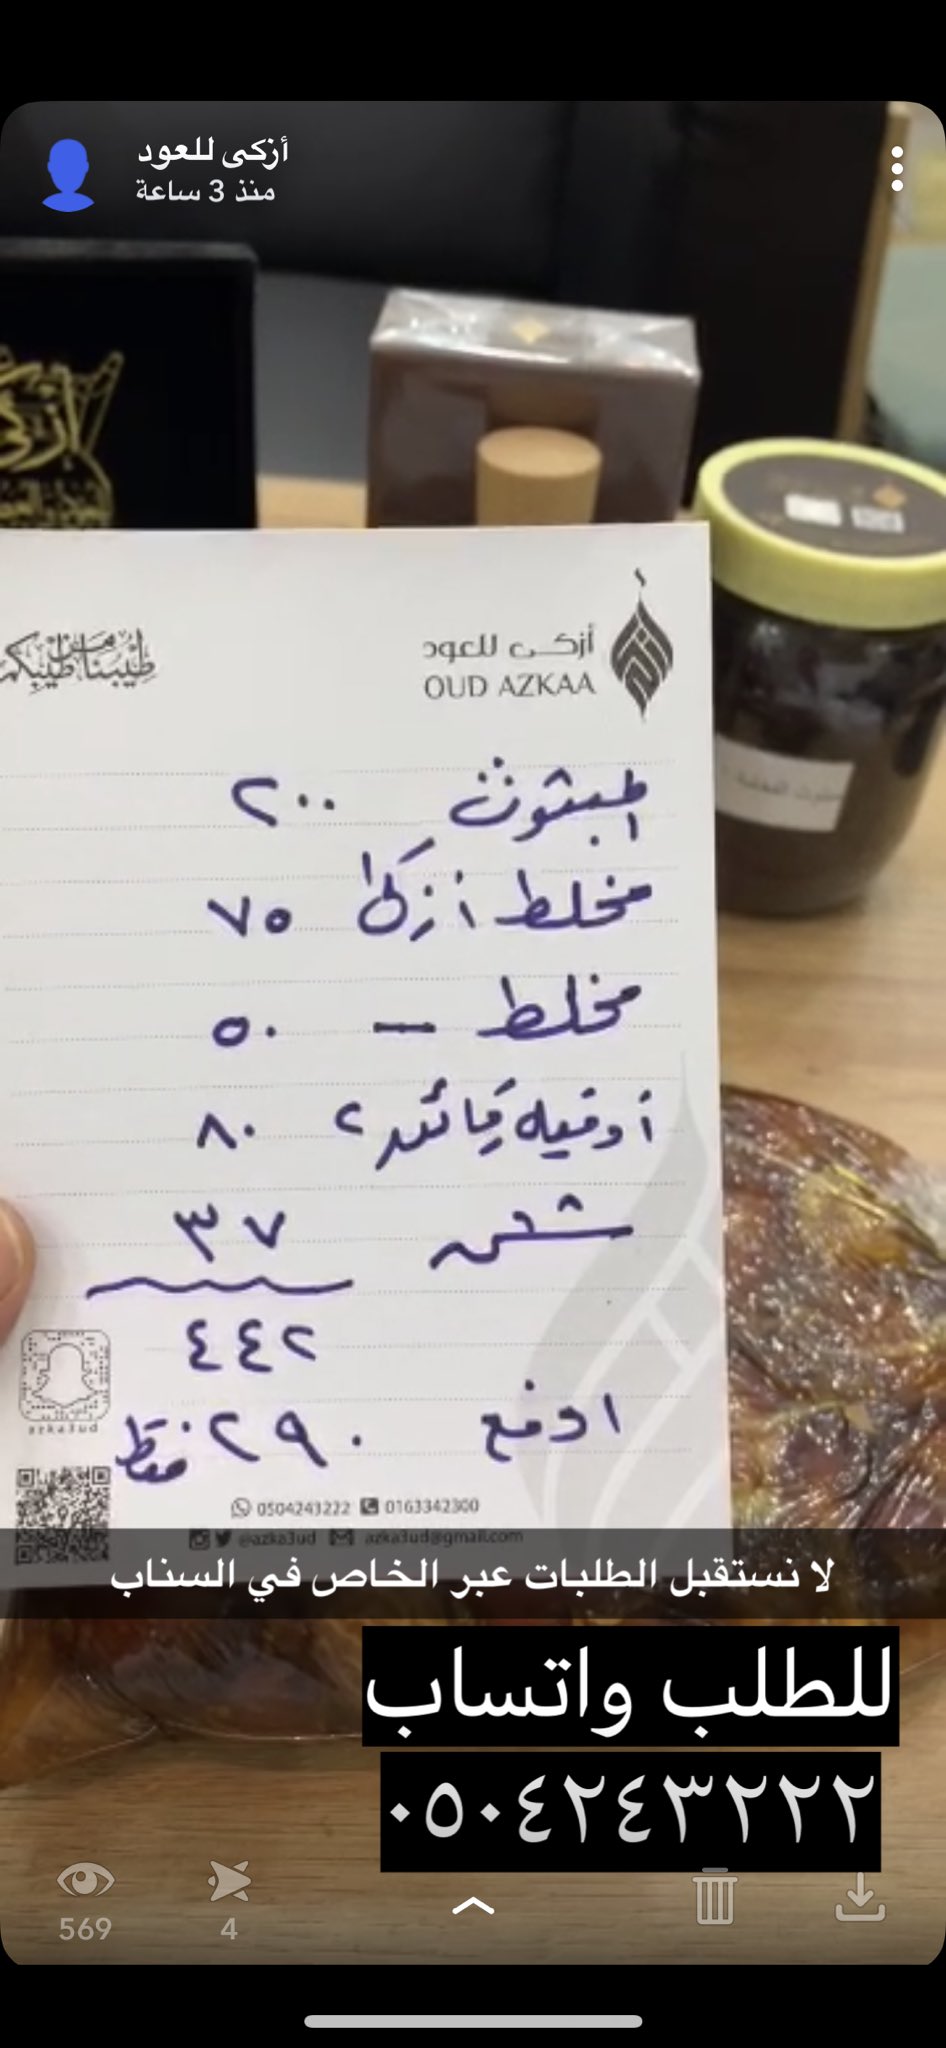 أزكى للعود
منذ 3 ساعة
أزكى للعود
OUD AZKAA
المبثوث ٢٠٠
مخلط أزكى ٧٥
مخلط — ٥٠
أوقيه كمائد ٢ ٨٠
شحن ٣٧
٤٤٢
ادفع ٢٩٠ فقط
azka3ud
0504243222 0163342300
@azka3ud azka3ud@gmail.com
لا نستقبل الطلبات عبر الخاص في السناب
للطلب واتساب
٠٥٠٤٢٤٣٢٢٢
569
4